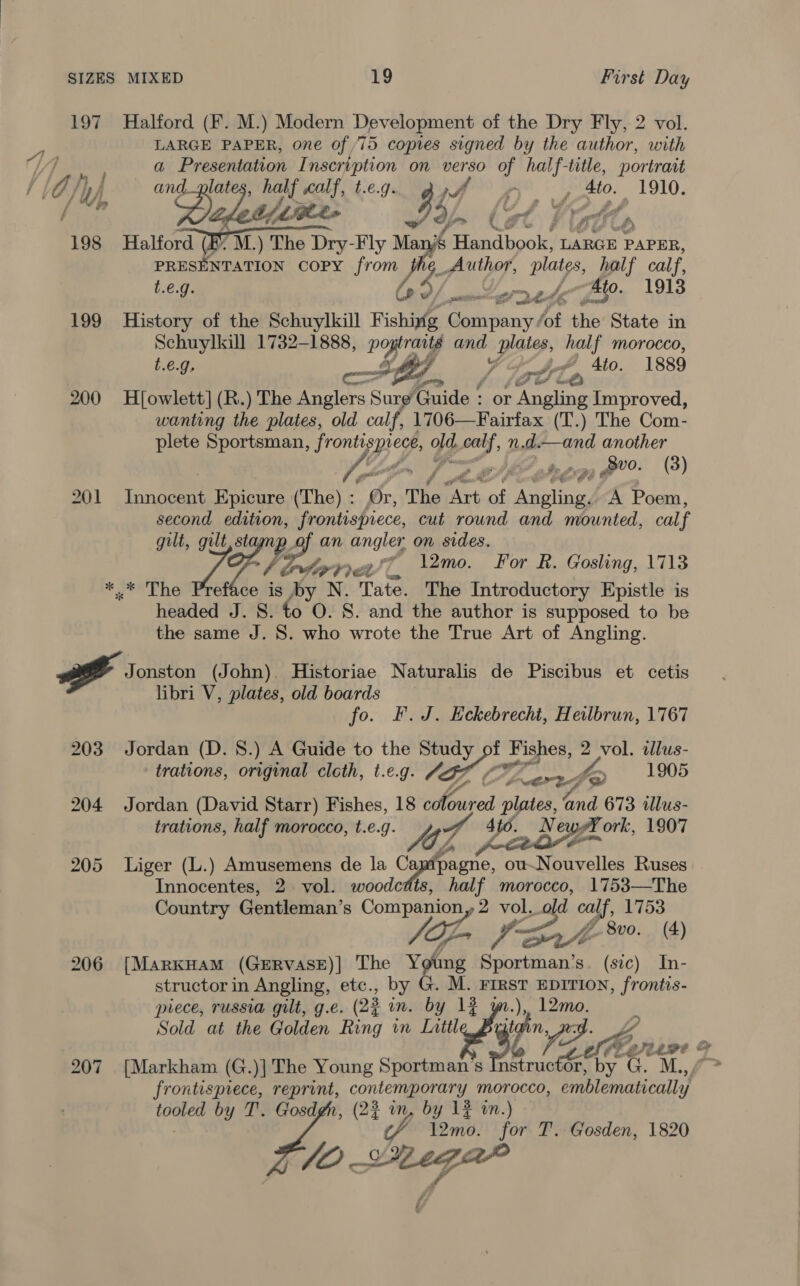 SIZES MIXED 19 First Day
197 Halford (F. M.) Modern Development of the Dry Fly, 2 vol.
LARGE PAPER, one of 75 copies signed by the author, with
a Presentation Inscription on verso of half-title, portrait
and plates, half calf, t.e.g. 4to. 1910.
198 Halford (F. M.) The Dry-Fly Man's Handbook, LARGE PAPER,
PRESENTATION COPY from the Author, plates, half calf,
t.e.g. 4to. 1913
199 History of the Schuylkill Fishing Company of the State in
Schuylkill 1732–1888, portraits and plates, half morocco,
t.e.g. 4to. 1889
200 H[owlett] (R.) The Anglers Sure Guide : or Angling Improved,
wanting the plates, old calf, 1706—Fairfax (T.) The Com-
plete Sportsman, frontispiece, old calf, n.d.—and another
8vo. (3)
201 Innocent Epicure (The) : Or, The Art of Angling. A Poem,
second edition, frontispiece, cut round and mounted, calf
gilt, gilt stamp of an angler on sides.
12mo. For R. Gosling, 1713
*⁎* The Preface is by N. Tate. The Introductory Epistle is
headed J. S. to O. S. and the author is supposed to be
the same J. S. who wrote the True Art of Angling.
Jonston (John). Historiae Naturalis de Piscibus et cetis
libri V, plates, old boards
fo. F. J. Eckebrecht, Heilbrun, 1767
203 Jordan (D. S.) A Guide to the Study of Fishes, 2 vol. illus-
trations, original cloth, t.e.g. 1905
204 Jordan (David Starr) Fishes, 18 coloured plates, and 673 illus-
trations, half morocco, t.e.g. 4to. New York, 1907
205 Liger (L.) Amusemens de la Campagne, ou Nouvelles Ruses
Innocentes, 2 vol. woodcuts, half morocco, 1753—The
Country Gentleman's Companion, 2 vol. old calf, 1753
8vo. (4)
206 [Markham (Gervase)] The Young Sportman's (sic) In-
structor in Angling, etc., by G. M. FIRST EDITION, frontis-
piece, russia gilt, g.e. (2¾ in. by 1¾ in.), 12mo.
Sold at the Golden Ring in Little Britain, n.d.
207 [Markham (G.)] The Young Sportman's Instructor, by G. M.,
frontispiece, reprint, contemporary morocco, emblematically
tooled by T. Gosden, (2¾ in. by 1¾ in.)
12mo. for T. Gosden, 1820